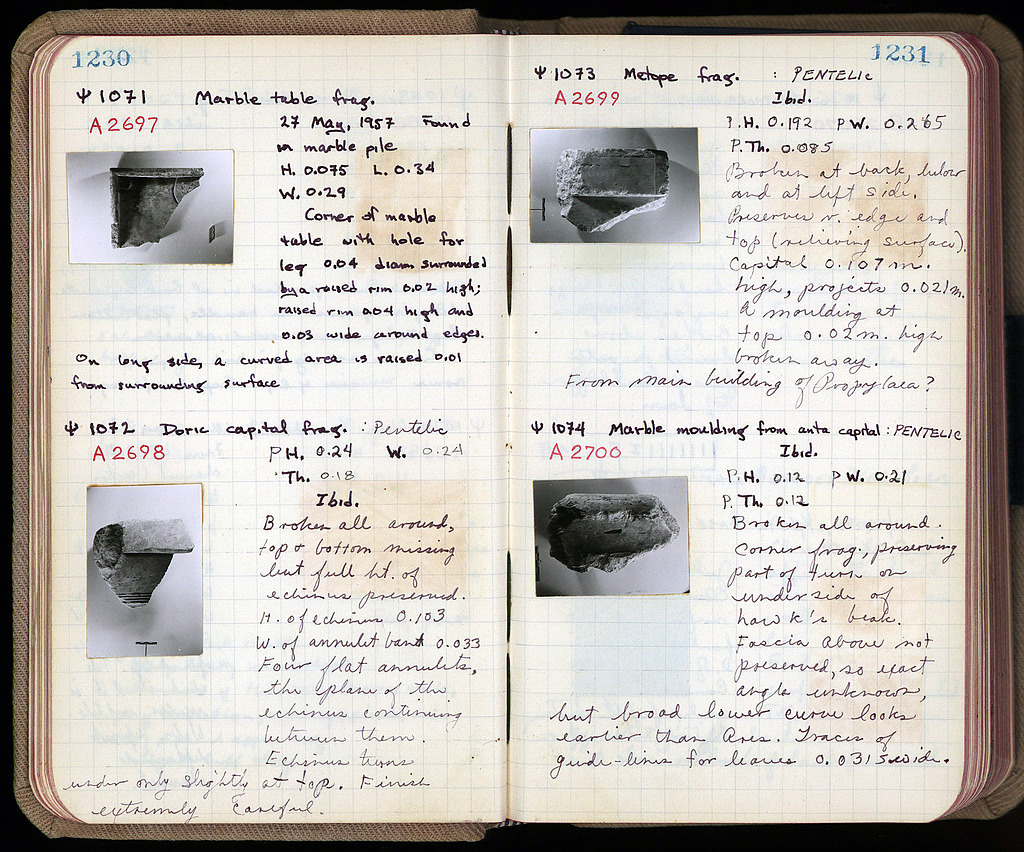 1230
Ψ 1071 Marble table frag.
A 2697
27 May, 1957 Found
in marble pile
H. 0.075 L. 0.34
W. 0.29
Corner of marble
table with hole for
leg 0.04 diam surrounded
by a raised rim 0.02 high;
raised rim 0.04 high and
0.03 wide around edges.
On long side, a curved area is raised 0.01
from surrounding surface
Ψ 1072 Doric capital frag. : Pentelic
A 2698
P H. 0.24 W. 0.24
Th. 0.18
Ibid.
Broken all around,
top & bottom missing
but full ht. of
echinus preserved.
H. of echinus 0.103
W. of annulet band 0.033
Four flat annulets,
the plane of the
echinus continuing
between them.
Echinus turns
under only slightly at top. Finish
extremely careful.
1231
Ψ 1073 Metope frag. : PENTELIC
A 2699
Ibid.
P.H. 0.192 P W. 0.265
P. Th. 0.085
Broken at back, below
and at left side.
Preserves r. edge and
top (relieving surface).
Capital 0.107 m.
high, projects 0.021 m.
A moulding at
top 0.02 m. high
broken away.
From main building of Propylaea?
Ψ 1074 Marble moulding from anta capital : PENTELIC
A 2700
Ibid.
P.H. 0.12 P W. 0.21
P. Th. 0.12
Broken all around.
Corner frag., preserving
part of turn on
underside of
hawk's beak.
Fascia above not
preserved, so exact
angle unknown,
but broad lower curve looks
earlier than Ares. Traces of
guide-lines for leaves 0.0315 wide.